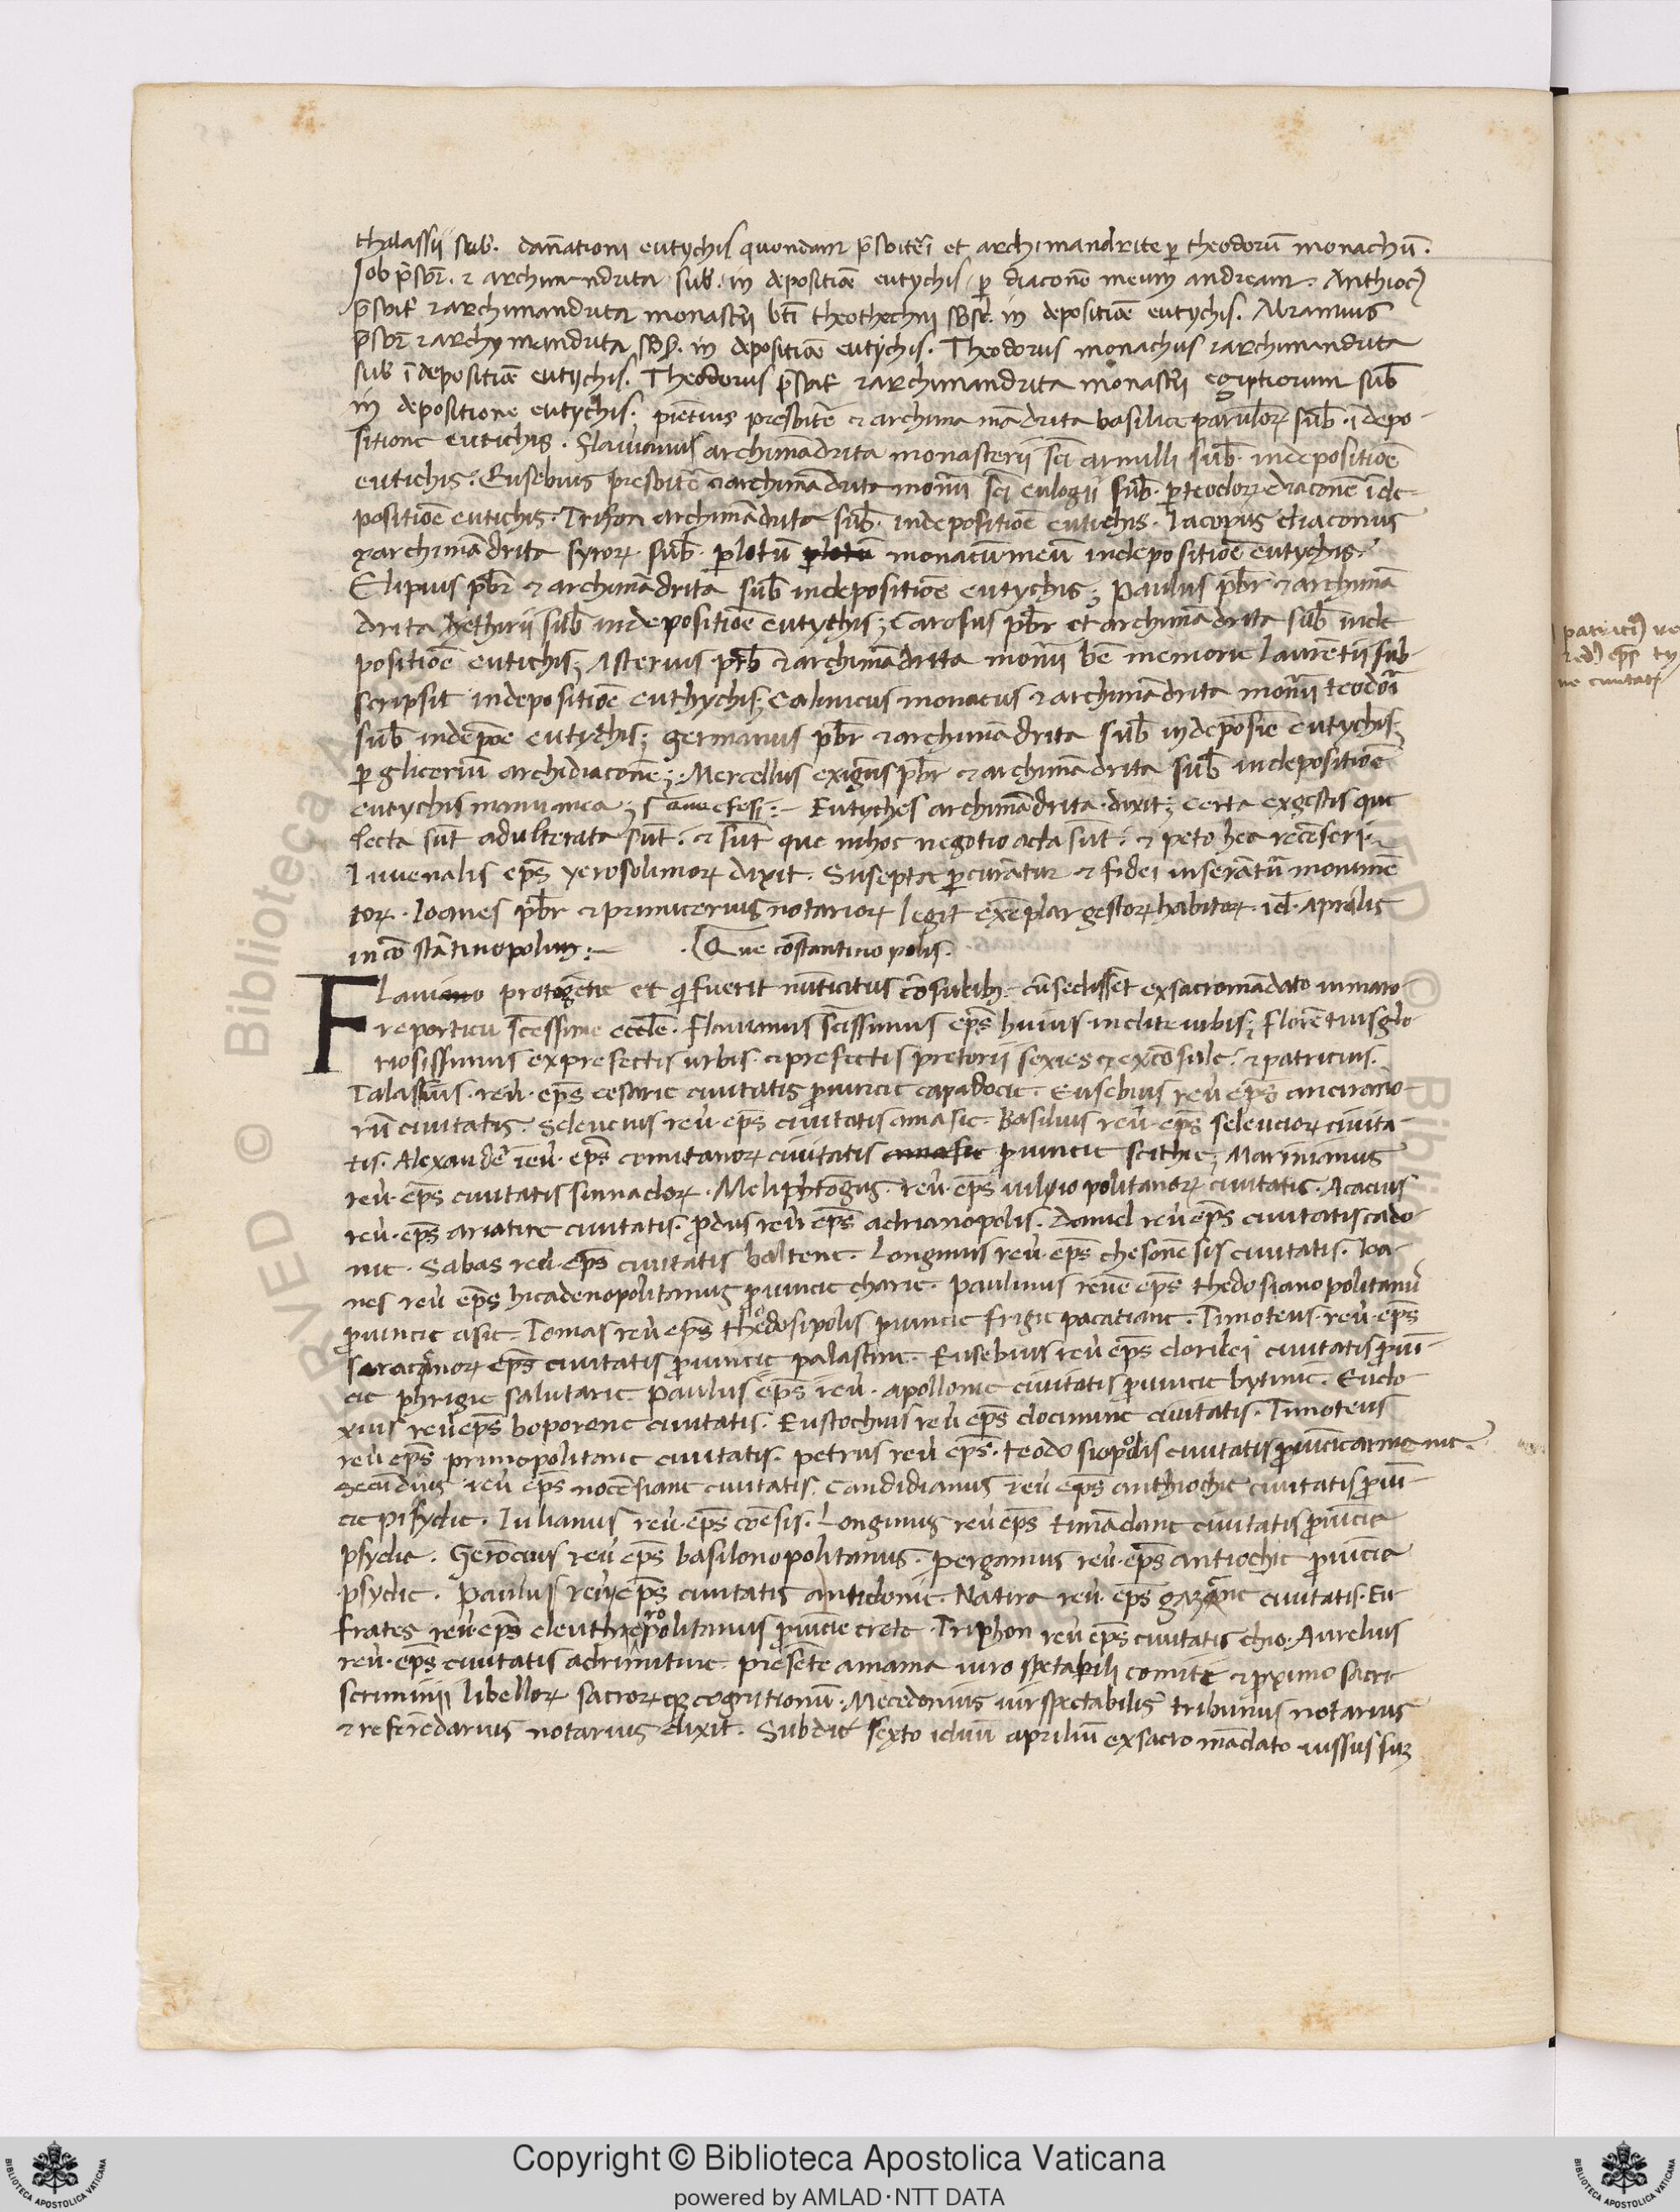 thalassii sub. dānationi eutychis quondam p̄sbiter̄i et archimandrite ꝑ theodorū monachū.
Job p̄sbr̄. ⁊ archimandrita sub. in depositiōe eutychis ꝑ diaconē meum andream. Anthioc9
p̄sbit̄ ⁊ archimandrita monastr̄ii bt̄i theothecnii sbsc̄. in depositiōe eutychis. Abramius
p̄sbr̄ ⁊ archymandrita sbs̄. in depositiōe eutychis. Theodorus monachus ⁊ archimandrita
sub ī depositiōe eutijchis. Theodorus p̄sbit̄ ⁊ archimandrita monastr̄ii egiptiorum sub̄
in depositione eutychis. pientius presbiter̄ & archima mādrita basilice paruulorꝝ sub̄. ī depo-
sitione eutichis. Flauianus archimādrita monasterii sc̄i armilli sub̄. in depositiōe
eutichis. Eusebius presbiter̄ & archimādrita mon̄rii sc̄i eulogii sub̄. ꝑ teodorꝝ diaconē ī de-
positiōe eutichis. Trifon archimādrita sub̄. in depositiōe eutichis. Jacopus diaconus
& archimādrita syrorꝝ. sub̄. ꝑ lotū monacū meū in depositiōe eutychis.
Elipius pb̄r & archimādrita sub̄ in depositiōe eutychis; Paulus pb̄r & archimā
drita hethirii sub̄ in depositiōe eutychis; Carosus pb̄r et archimādrita sub̄ in de
positiōe eutichis; Asterius prb̄ & archimādrita mon̄rii bē memorie laurētii sub-
scripsit in depositiōe euthychis; Calinicus monacus & archimādrita mon̄rii teodor̄i
sub̄ in depōe eutychis; Germanus pb̄r & archimādrita sub̄ in deposīe eutychis;
ꝑ gliceriū archidiaconē; Mercellus exiguus pb̄r & archimādrita sub̄ in depositiōe
eutychis manu mea; Que efesi:- Eutyches archimādrita dixit; certa ex gestis que
lecta sūt adulterata sūt. & sūt que in hoc negotio acta sūt. & peto hec recēseri.
Iuuenalis ep̄s yerosolimorꝝ dixit. Suscepta ꝑcurātur & fidei inserātur̄ monumē
torꝝ. Ioanes pb̄r & primicerius notariorꝝ legit exēplar gestorꝝ habitorꝝ id̄. aprilis
in cō stātinopolim:- Que cōstantinopolis.
Flauiano protogēne et q̄ fuerit nūtiatus cōsulibꝫ. cū sedissēt ex sacro mādato in mago
re porticu sc̄essime eccl̄e. Flauianus sc̄issimus ep̄s huius inclite urbis; Florētius glo
riosissimus ex prefectis urbis & prefectis pretorii sexies & excōsule. & patricius.
Talassius. reu. ep̄s cesarie ciuitatis ꝓuincie capadocie. Eusebius reu ep̄s ancirano
rū ciuitatis. Seleucius reu. ep̄s ciuitatis amasie. Basilius reu. ep̄s seleuciorꝝ ciuita
tis. Alexander̄ reu. ep̄s comitanorꝝ ciuitatis ꝓuincie scithie; Marinianus
reu. ep̄s ciuitatis sinnadorꝝ. Meliphtōgus. reu. ep̄s iuliopolitanorꝝ ciuitatis. Acacius
reu. ep̄s ariatire ciuitatis. ꝓdus reu ep̄s adrianopolis. Daniel reu ep̄s ciuitatis cado
nie. Sabas reu. ep̄s ciuitatis baltene. Longinus reu. ep̄s chesonēsis ciuitatis. Ioa
nes reu ep̄s hicadenopolitanus ꝓuincie charie. Paulinus reue ep̄s thedosianopolitanū
ꝓuincie asie. Tomas reu ep̄s theodosipolis ꝓuincie frigie pacatiane. Timoteus. reu. ep̄s
saracinorꝝ ep̄s ciuitatis ꝓuincie palastine. Eusebius reu ep̄s dorilei ciuitatis ꝓuī-
cie phrigie salutarie Paulus ep̄s reu. apollonie ciuitatis ꝓuincie bytinie. Eudo
xius reu ep̄s boporene ciuitatis. Eustochius reu ep̄s docimine ciuitatis. Timoteus
reu ep̄s primopolitane ciuitatis. petrus reu ep̄s. teodosiopolis ciuitatis ꝓuīcie armenie.
Secūdius reu ep̄s nocēsiane ciuitatis. Candidianus reu ep̄s anthiochie ciuitatis ꝓuī-
cie pisydie. Iulianus reu. ep̄s coēsis. Longinus reu ep̄s timādane ciuitatis ꝓuīcie
psydie. Gerōcius reu ep̄s basilonopolitanus. pergamius reu. ep̄s antiochie ꝓuīcie
psydie. Paulus reu ep̄s ciuitatis antidonie. Natira reu. ep̄s gazane ciuitatis. Eu
frates reu. ep̄s eleutheropolitanus ꝓuīcie crete. Triphon reu ep̄s ciuitatis chio. Aurelius
reu. ep̄s ciuitatis adrimitine. presēte amama uiro spetabili comite & ꝓximo sacri
scriminii libellorꝝ sacrorꝝqꝫ cognitionū. Macedonius uir spectabilis tribunus notarius
& referēdarius notarius dixit. Sub die sexto iduū apriliū ex sacro mādato iussus suꝫ
patrici9
ciuitat
© Biblioteca A
Copyright © Biblioteca Apostolica Vaticana
powered by AMLAD·NTT DATA